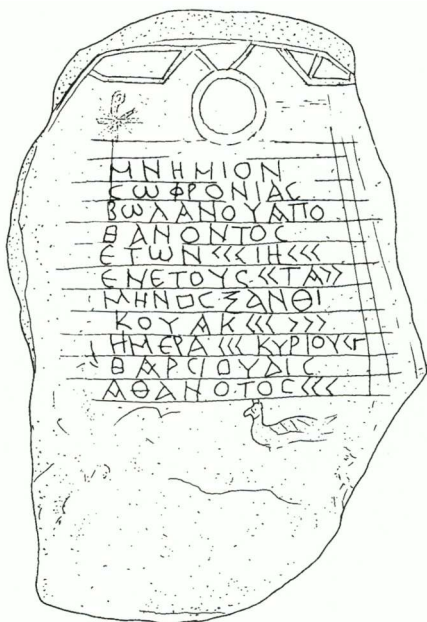 ΜΝΗΜΙΟΝ
ϹΩΦΡΟΝΙΑϹ
ΒΩΛΑΝΟΥΑΠΟ
ΘΑΝΟΝΤΟϹ
ΕΤΩΝ<<<ΙΗ<<<
ΕΝΕΤΟΥϹ<<ΤΑ>>
ΜΗΝΟϹΞΑΝΘΙ
ΚΟΥΑΚ<<< >>>
ΗΜΕΡΑ<<<ΚΥΡΙΟΥ
ΘΑΡϹΙΟΥΔΙϹ
ΑΘΑΝΟΤΟϹ<<<